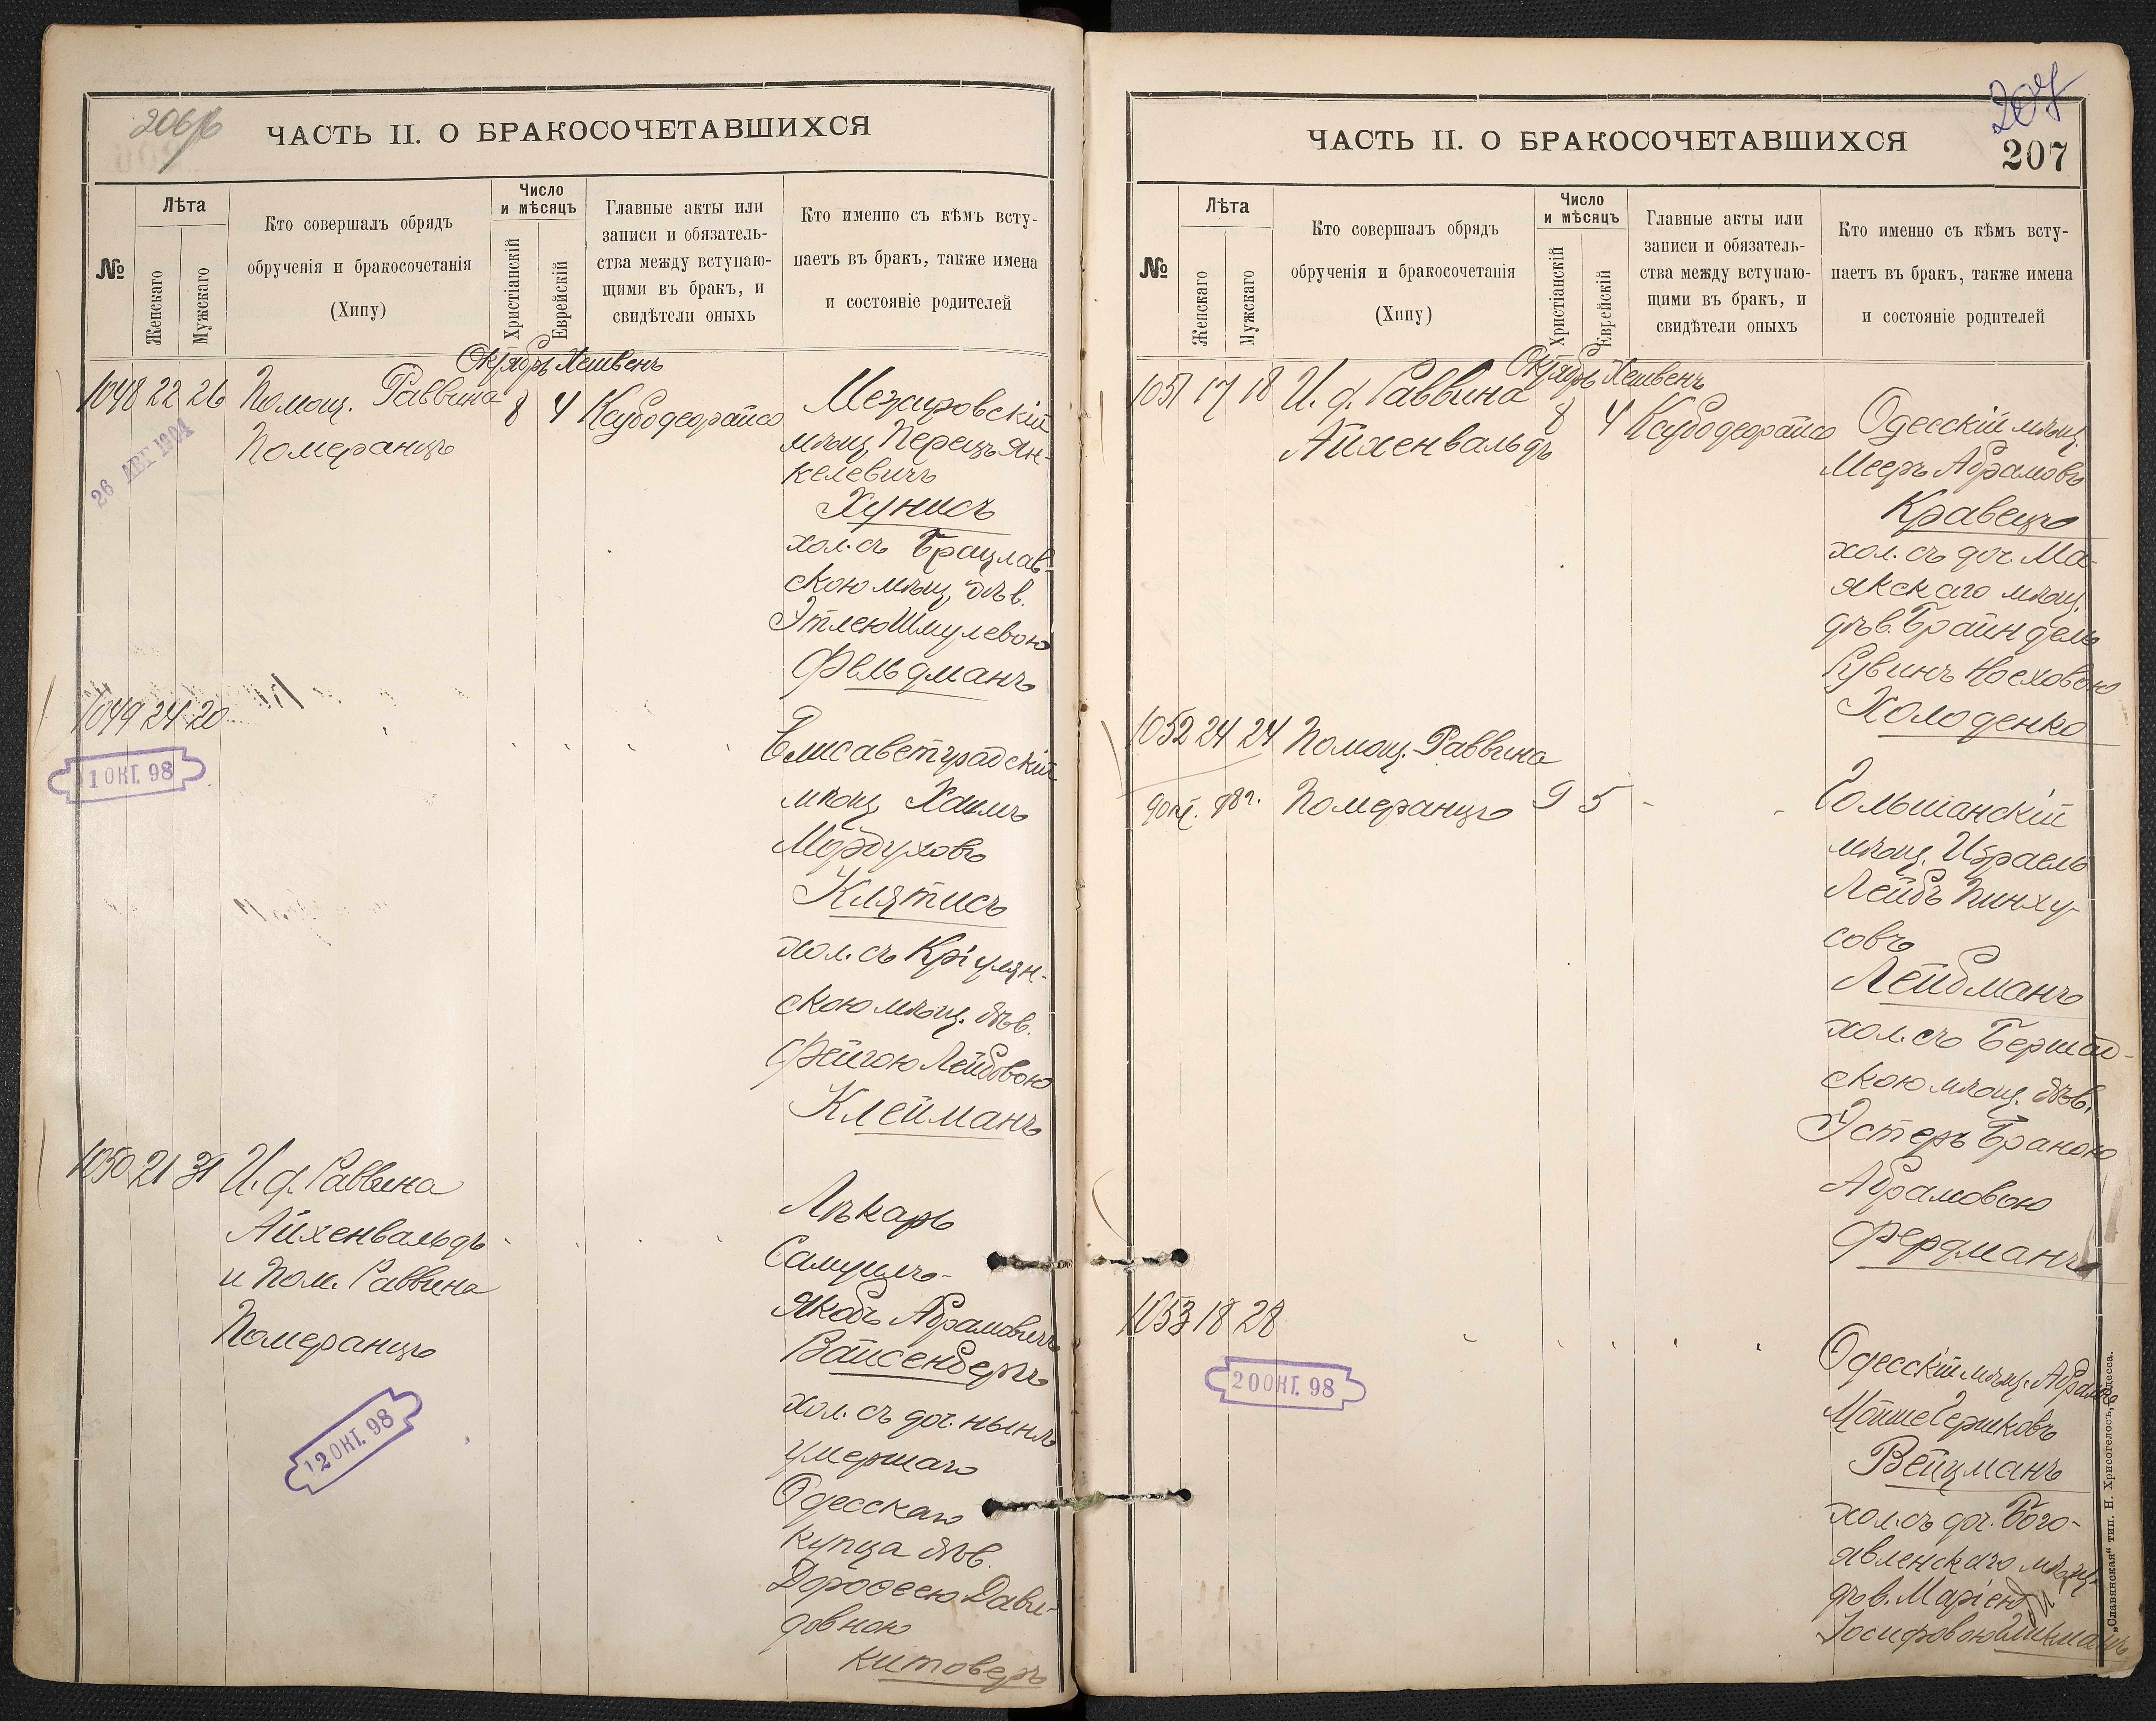 206/б
ЧАСТЬ II. О БРАКОСОЧЕТАВШИХСЯ
№
Лѣта
Женскаго
Мужскаго
Кто совершалъ обрядъ
обрученія и бракосочетанія
(Хипу)
Число
и мѣсяцъ
Христіанскій
Еврейскій
Главные акты или
записи и обязатель-
ства между вступаю-
щими въ бракъ, и
свидѣтели оныхь
Кто именно съ кѣмъ всту-
паетъ въ бракъ, также имена
и состояніе родителей
Октябрь Хешвенъ
1048 22 26 Помощ. Раввина 8 4 Ксубодеорайсо
Померанцъ
26 АВГ 1904
Межировскій
мѣщ. Перецъ Ян-
келевичъ
Хунисъ
хол. съ Брацлав-
скою мѣщ. дѣв.
Этлею Шмулевою
Фельдманъ
1049 24 20
11 ОКТ. 98
Елисаветградскій
мѣщ. Хаимъ
Мордуховъ
Клятисъ
хол. съ Кріулян-
скою мѣщ. дѣв.
Фейгою Лейбовою
Клейманъ
1050 21 31 И. д. Раввина
Айхенвальдъ
и Пом. Раввина
Померанцъ
12 ОКТ. 98
Лѣкарь
Самуилъ-
Якобъ Абрамовичъ
Вайсенбергъ
хол. съ доч. нынѣ
умершаго
Одесскаго
купца дѣв.
Доросеею Дави-
довною
Китоверъ
207
207
ЧАСТЬ II. О БРАКОСОЧЕТАВШИХСЯ
№
Лѣта
Женскаго
Мужскаго
Кто совершалъ обрядъ
обрученія и бракосочетанія
(Хипу)
Число
и мѣсяцъ
Христіанскій
Еврейскій
Главные акты или
записи и обязатель-
ства между вступаю-
щими въ бракъ, и
свидѣтели оныхъ
Кто именно съ кѣмъ всту-
паетъ въ бракъ, также имена
и состояніе родителей
Октябрь Хешвенъ
1051 17 18 И. д. Раввина 8 4 Ксубодеорайсо
Айхенвальдъ
Одесскій мѣщ.
Мееръ Абрамовъ
Кравецъ
хол. съ доч. Ма-
якскаго мѣщ.
дѣв. Брайндель
Рувинъ Носховою
Холоденко
1052 24 24 Помощ. Раввина
98 г. Померанцъ 9 5
Гольшанскій
мѣщ. Израель
Лейбъ Пинху-
совъ
Лейбманъ
хол. съ Бершад-
скою мѣщ. дѣв.
Эстеръ Браною
Абрамовою
Фердманъ
1053 18 28
20 ОКТ. 98
Одесскій мѣщ. Абрамъ
Мойше Гершковъ
Вейцманъ
хол. съ доч. Бого-
явленскаго мѣщ.
дѣв. Маріею
Іосифовою
„Славянская" тип. Н. Хрисогелосъ, Одесса.